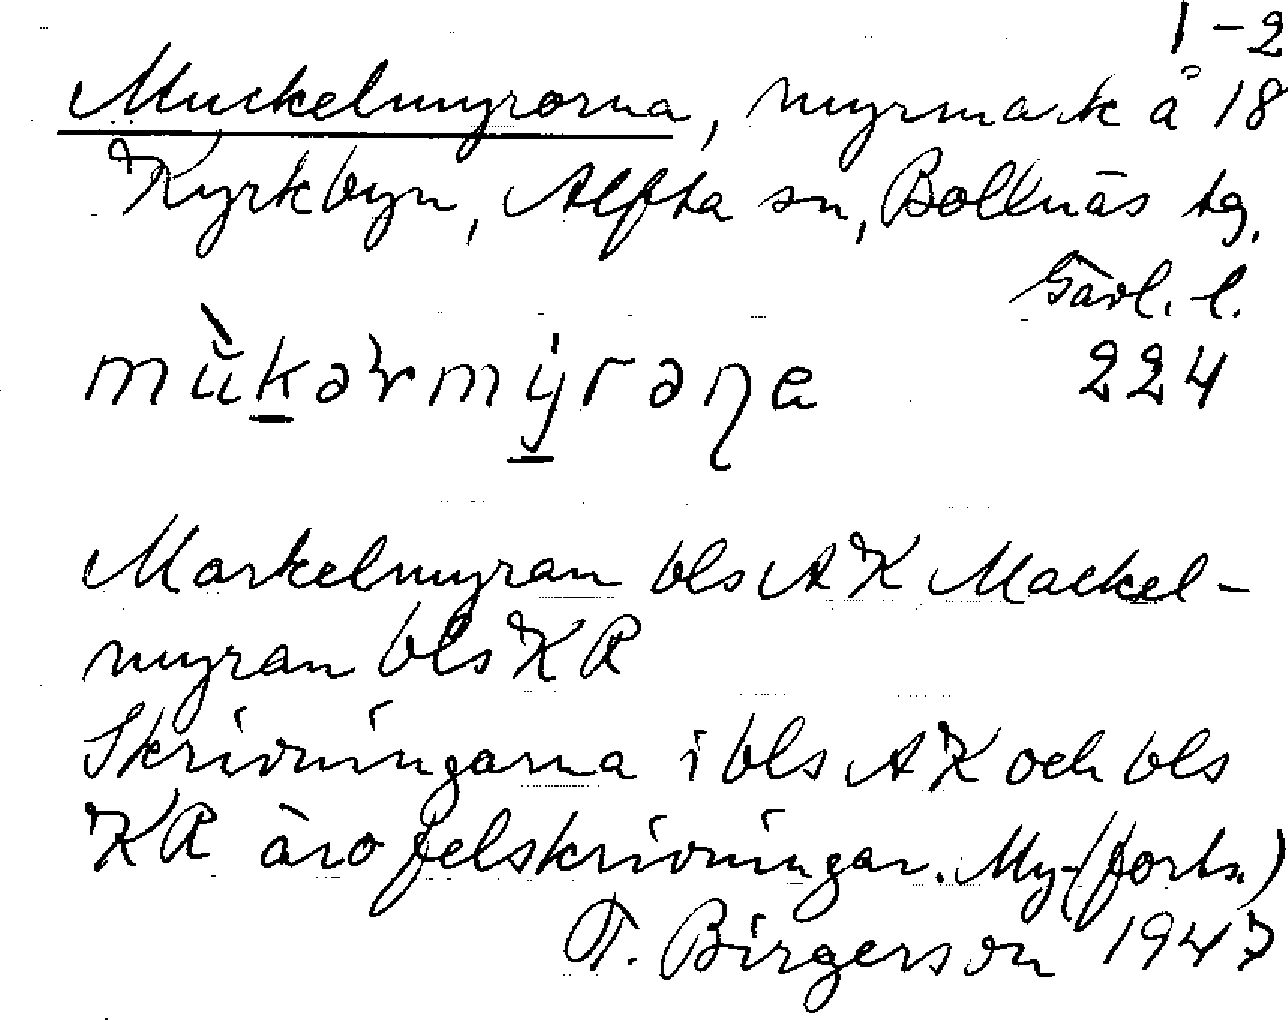 1-2
Muckelmyrorna, myrmark å 18
Kyrkbyn, Alfta sn, Bollnäs tg,
Gävl. l.
224
Markelmyran bls AK Mackel-
myran bls KR
Skrivningarna i bls AK och bls
KR äro felskrivningar. My-(forts.)
T. Birgerson 1947